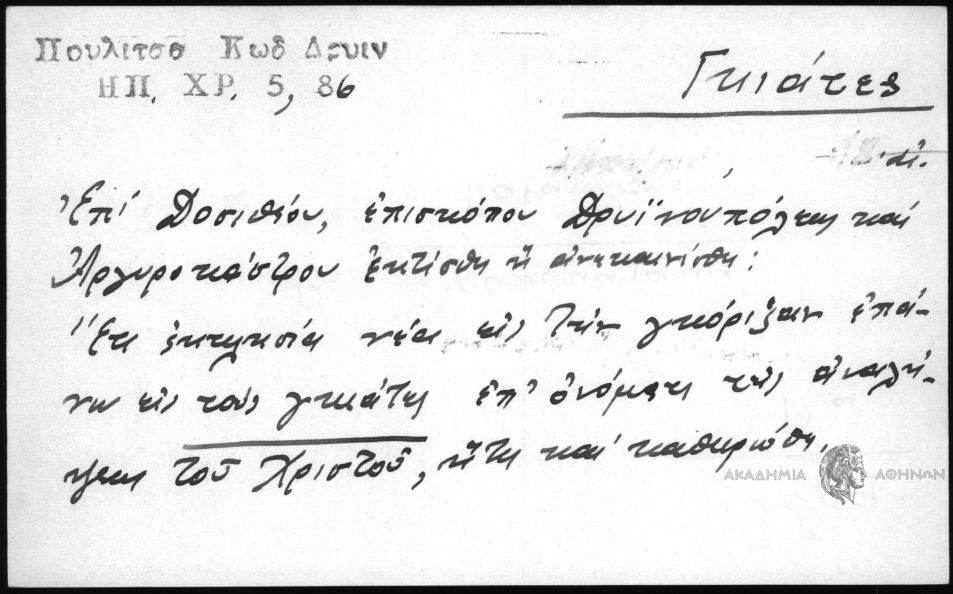 Πουλιτσσ Κωδ Δρυιν
ΗΠ. ΧΡ. 5, 86
Γκιάτες
Ἐπί Δοσιθέου, ἐπισκόπου Δρυϊνουπόλεως καί
Ἀργυροκάστρου ἐκτίσθη ἤ ἀνεκαινίσθη:
Ἔτι ἐκκλησία νέα εἰς τήν γκόριζαν ἐπά-
νω εἰς τούς γκιάτες ἐπ' ὀνόματι τῆς ἀναλή-
ψεως τοῦ Χριστοῦ, ἥτις καί καθιερώθη.
ΑΚΑΔΗΜΙΑ ΑΘΗΝΩΝ